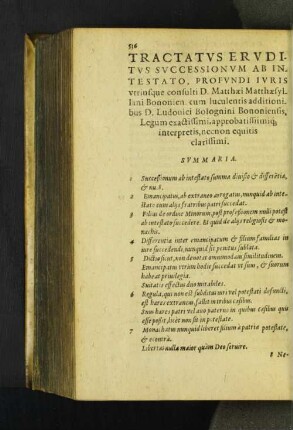 516
TRACTATVS ERVDI-
TVS SVCCESSIONVM AB IN-
TESTATO, PROFVNDI IVRIS
vtriusque consulti D. Matthæi Matthæsyl-
lani Bononien. cum luculentis additioni-
bus D. Ludouici Bolognini Bononiensis,
Legum exactissimi, approbatissimiq;
interpretis, necnon equitis
clarissimi.
SVMMARIA.
1 Successionum ab intestato summa diuisio & differētia,
& nu. 8.
2 Emancipatus, ab extraneo arrogatus, nunquid ab inte-
stato cum alijs fratribus patri succedat.
3 Filius de ordine Minorum, post professionem nulli potest
ab intestato succedere. Et quid de alijs religiosis & mo-
nachis.
4 Differentia inter emancipatum & filium familias in
iure succedendi, nunquid sit penitus sublata.
5 Dictio sicut, non denotat omnimodam similitudinem.
Emancipatus vtrum hodie succedat vt suus, & suorum
habeat priuilegia.
Suitatis effectus duo mirabiles.
6 Regula, quòd non est subditus iuri vel potestati defuncti,
est hæres extraneus, fallit in tribus casibus.
Suus hæres patri vel auo paterno in quibus casibus quis
esse possit, licet non sit in potestate.
7 Monachatus nunquid liberet filium à patria potestate,
& econtrà.
Libertas nulla maior quàm Deo seruire.
8 Ne-